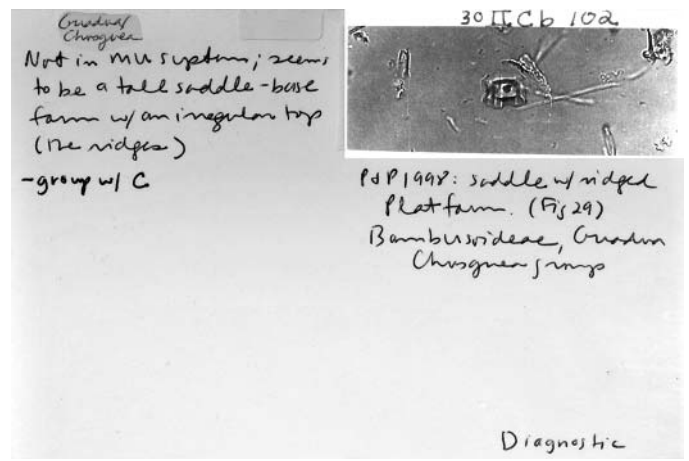 Guadua/
Chusquea
Not in MU system; seems
to be a tall saddle-base
form w/ an irregular top
(the ridges)
-group w/ C
30 II Cb 102
PdP 1998: saddle w/ ridged
Platform. (Fig 29)
Bambusoideae, Guadua
Chusquea groups
Diagnostic